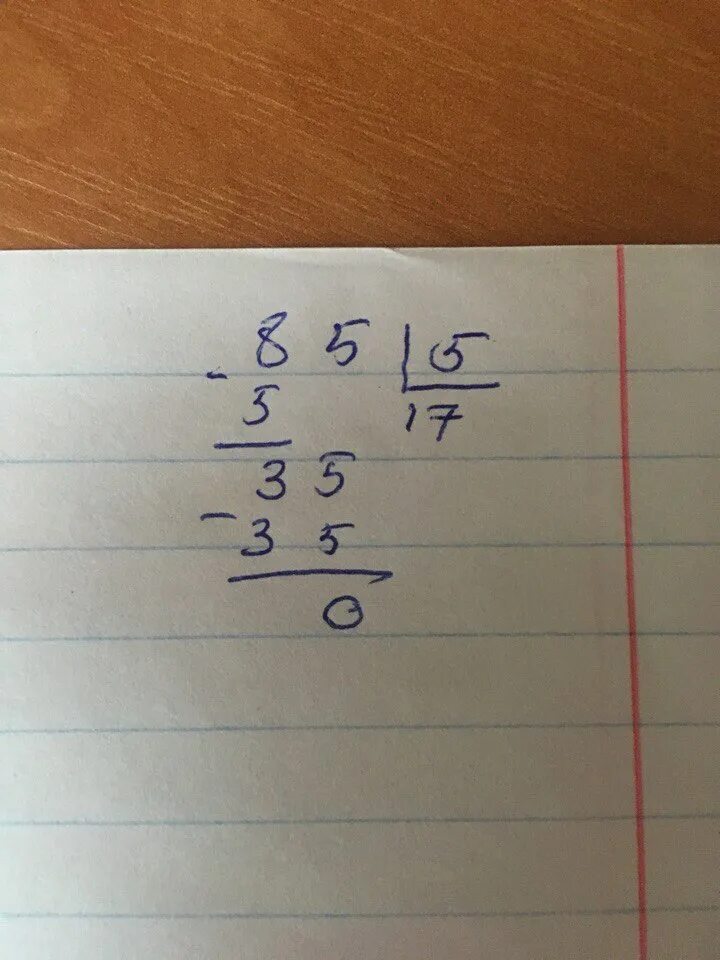 - 85 | 5
5 17
35
- 35
0